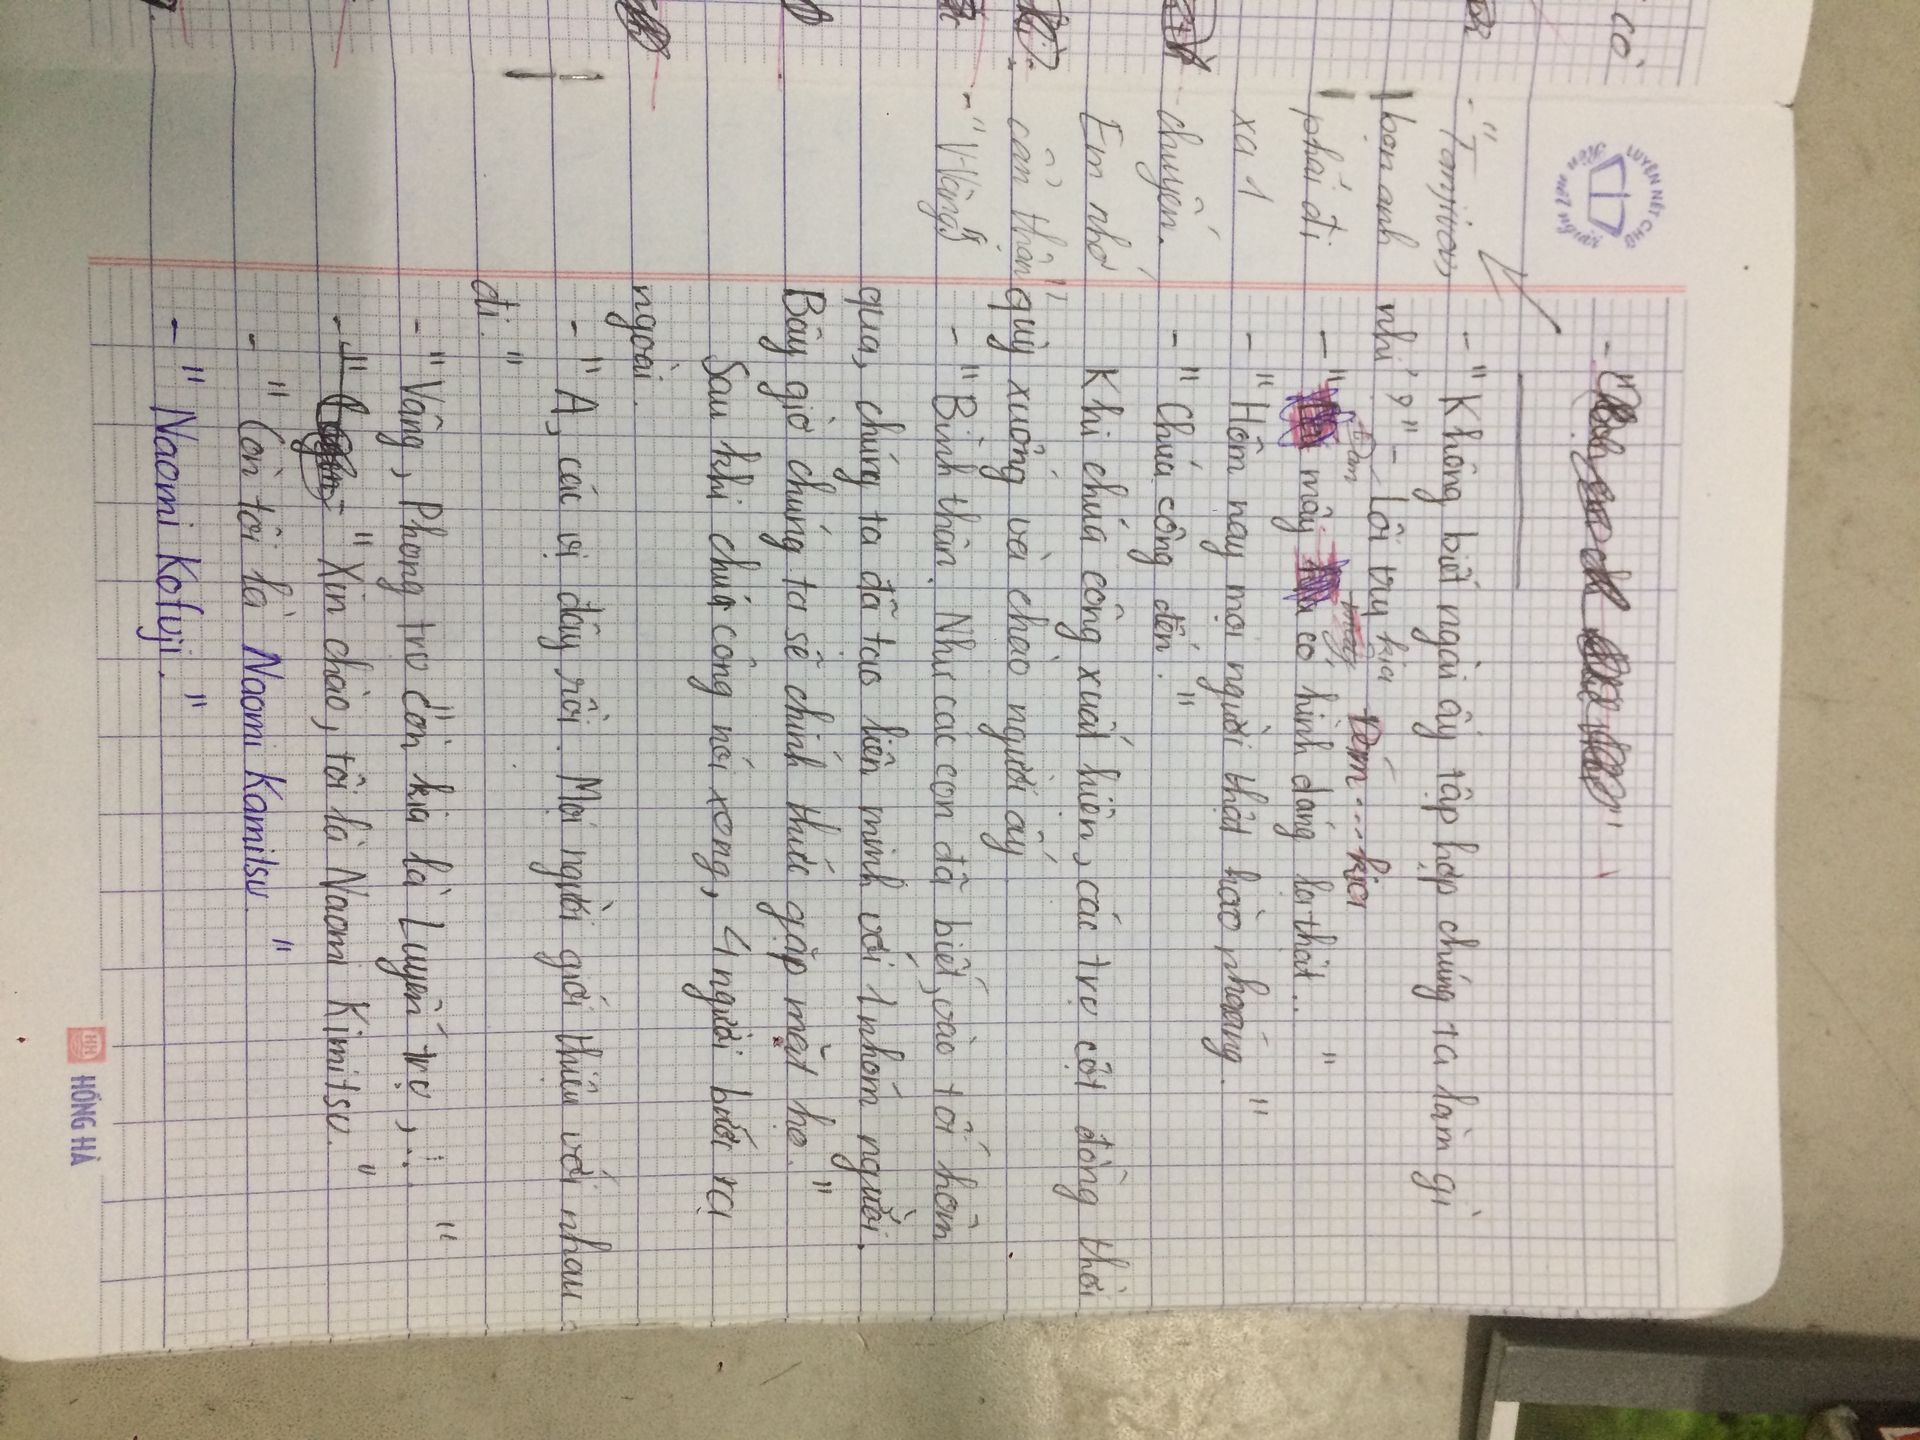 có
LUYỆN NÉT CHỮ
Rèn nết người
- "Tanjirou,
bọn anh
phải đi
xa 1
chuyến.
Em nhớ
cẩn thận"
- "V-Vâng"
- "Không biết ngài ấy tập hợp chúng ta làm gì
nhỉ?" - Lôi trụ kia
Đám mây kia
- " mấy có hình dáng lạ thật.. "
- "Hôm nay mọi người thật hào nhoáng. "
- "Chúa công đến. "
Khi chúa công xuất hiện, các trụ cột đồng thời
quỳ xuống và chào người ấy
- "Bình thân. Như các con đã biết, vào tối hôm
qua, chúng ta đã tạo liên minh với 1 nhóm người.
Bây giờ chúng ta sẽ chính thức gặp mặt họ. "
Sau khi chúa công nói xong, 4 người bước ra
ngoài.
- "A, các vị đây rồi. Mọi người giới thiệu với nhau
đi. "
- "Vâng, Phong trụ còn kia là Luyến trụ,... "
- "Xin chào, tôi là Naomi Kimitsu. "
- "Còn tôi là Naomi Kamitsu. "
- "Naomi Kofuji. "
HỒNG HÀ